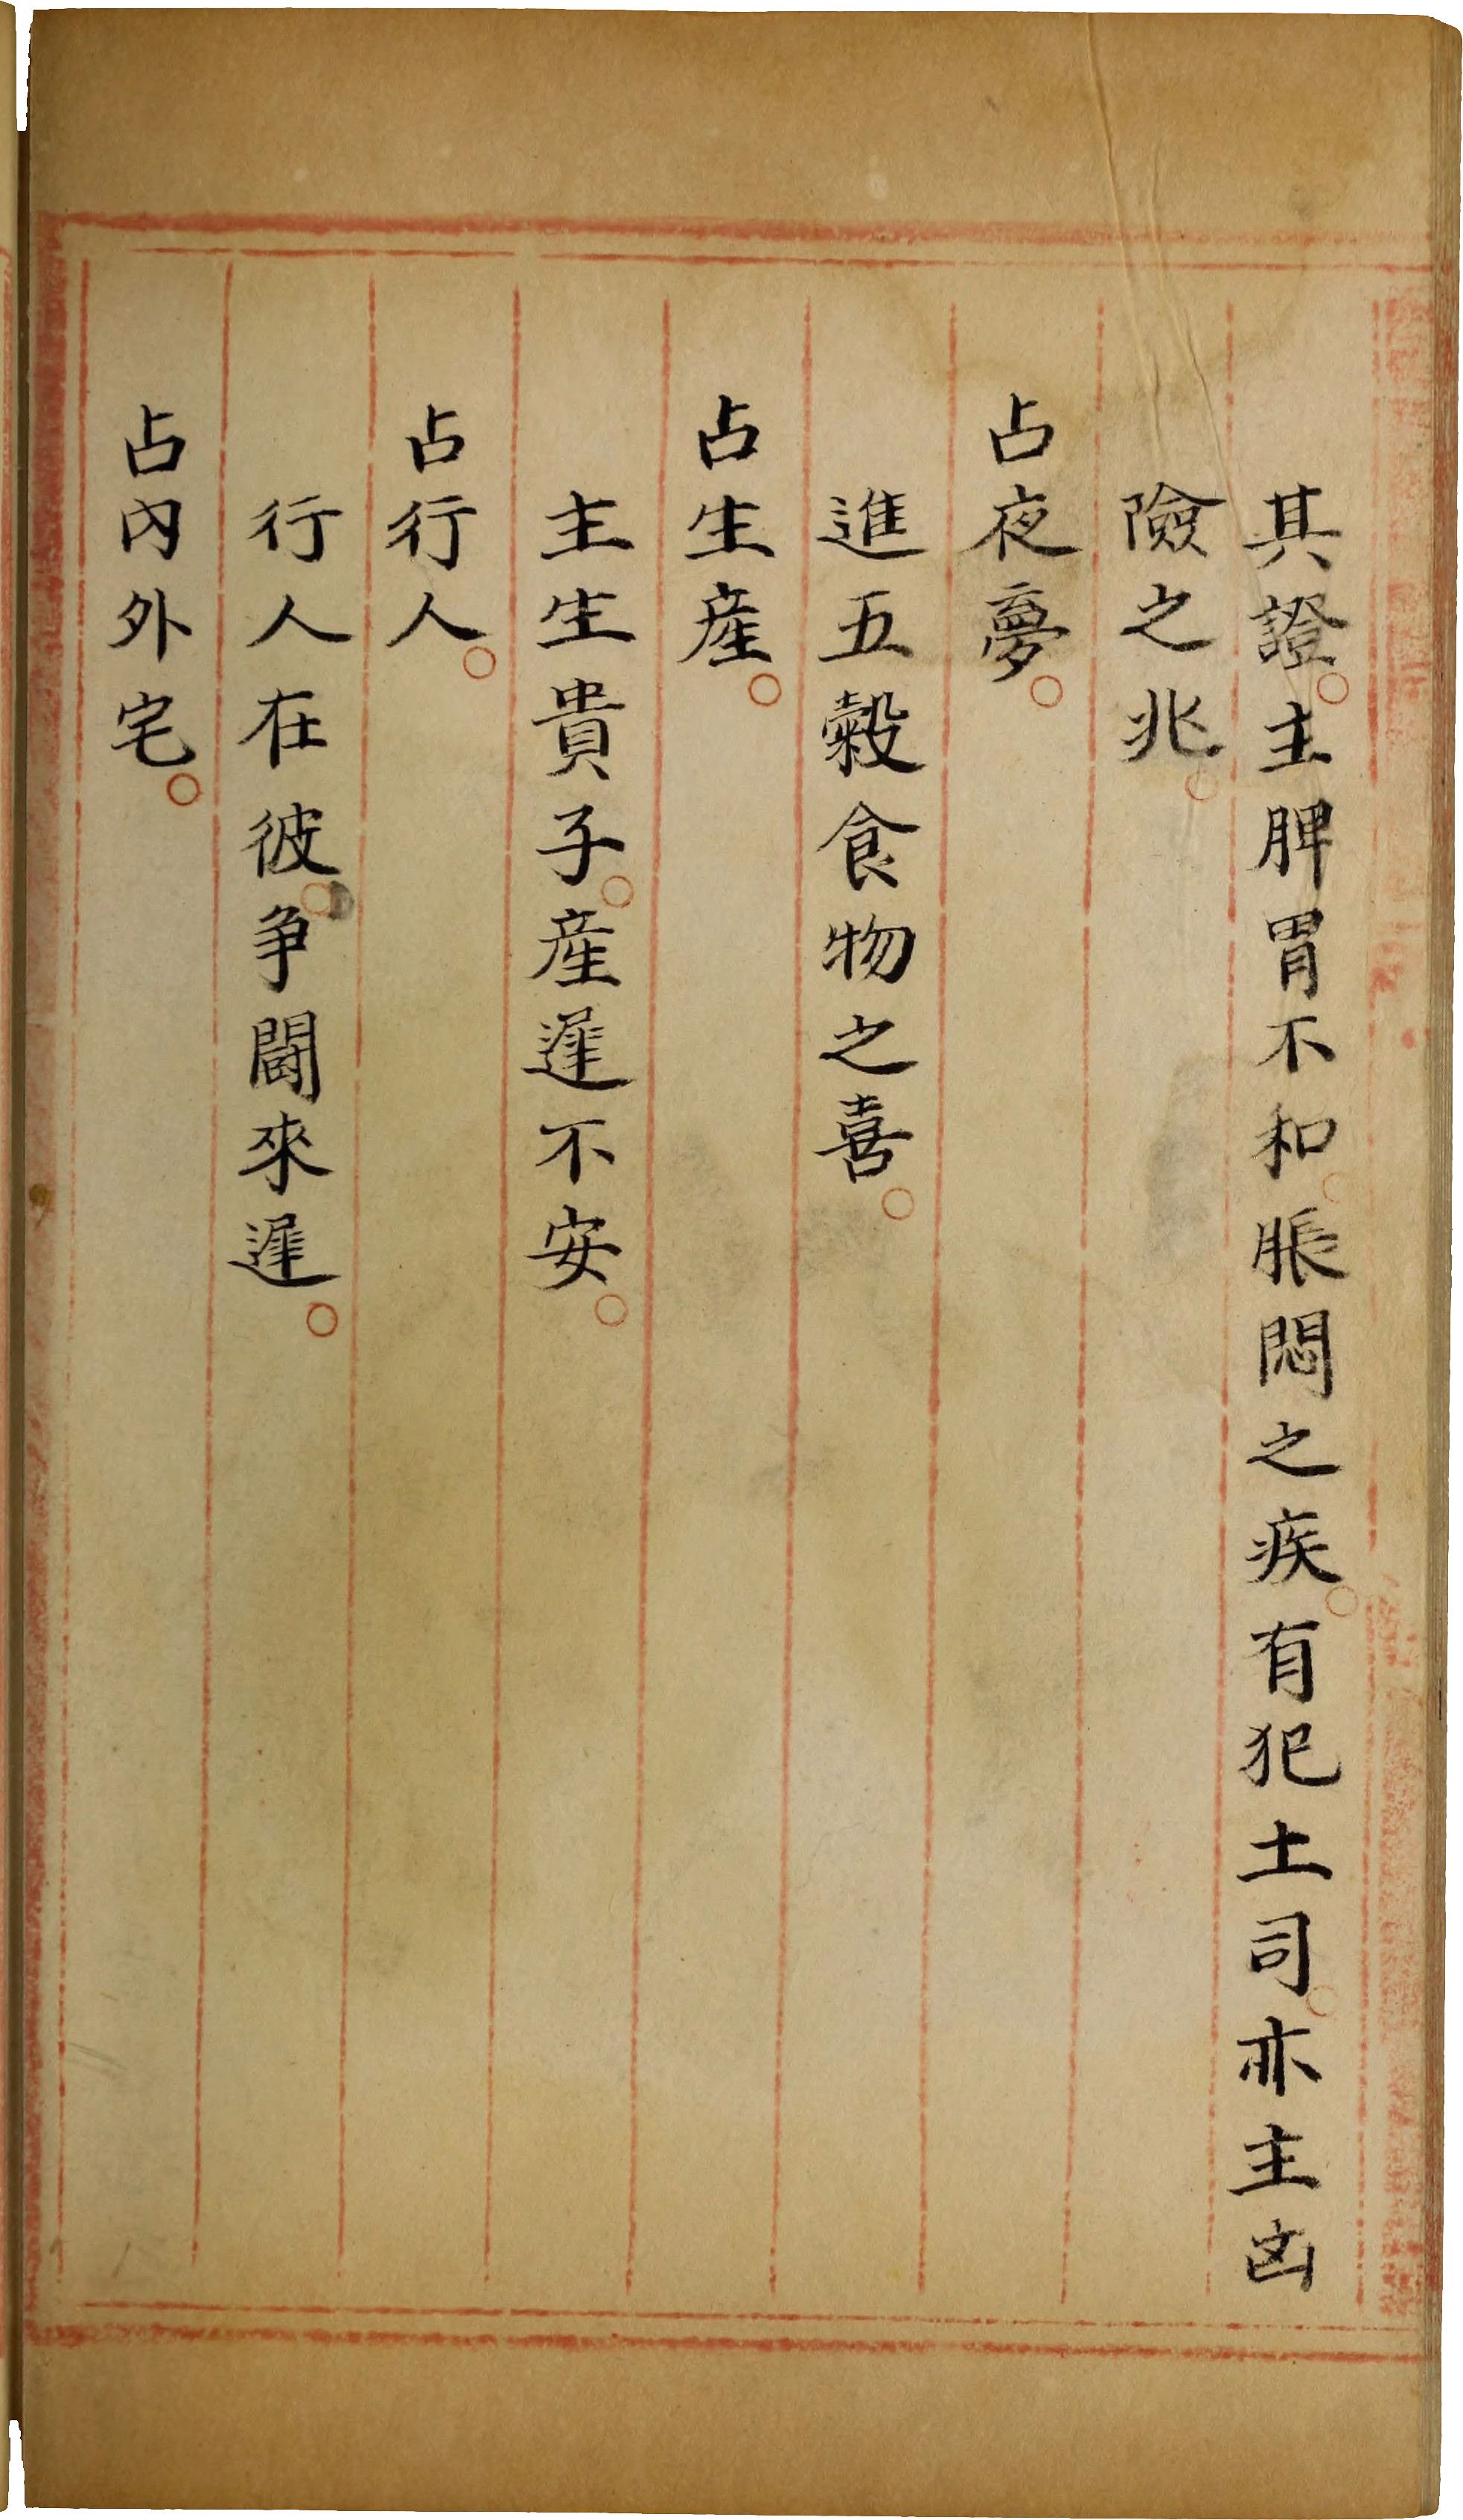 其證主脾胃不和脹悶之疾有犯土司亦主凶
險之兆
占夜夢
進五穀食物之喜
占生産
主生貴子産遲不安
占行人
行人在彼爭鬭來遲
占內外宅